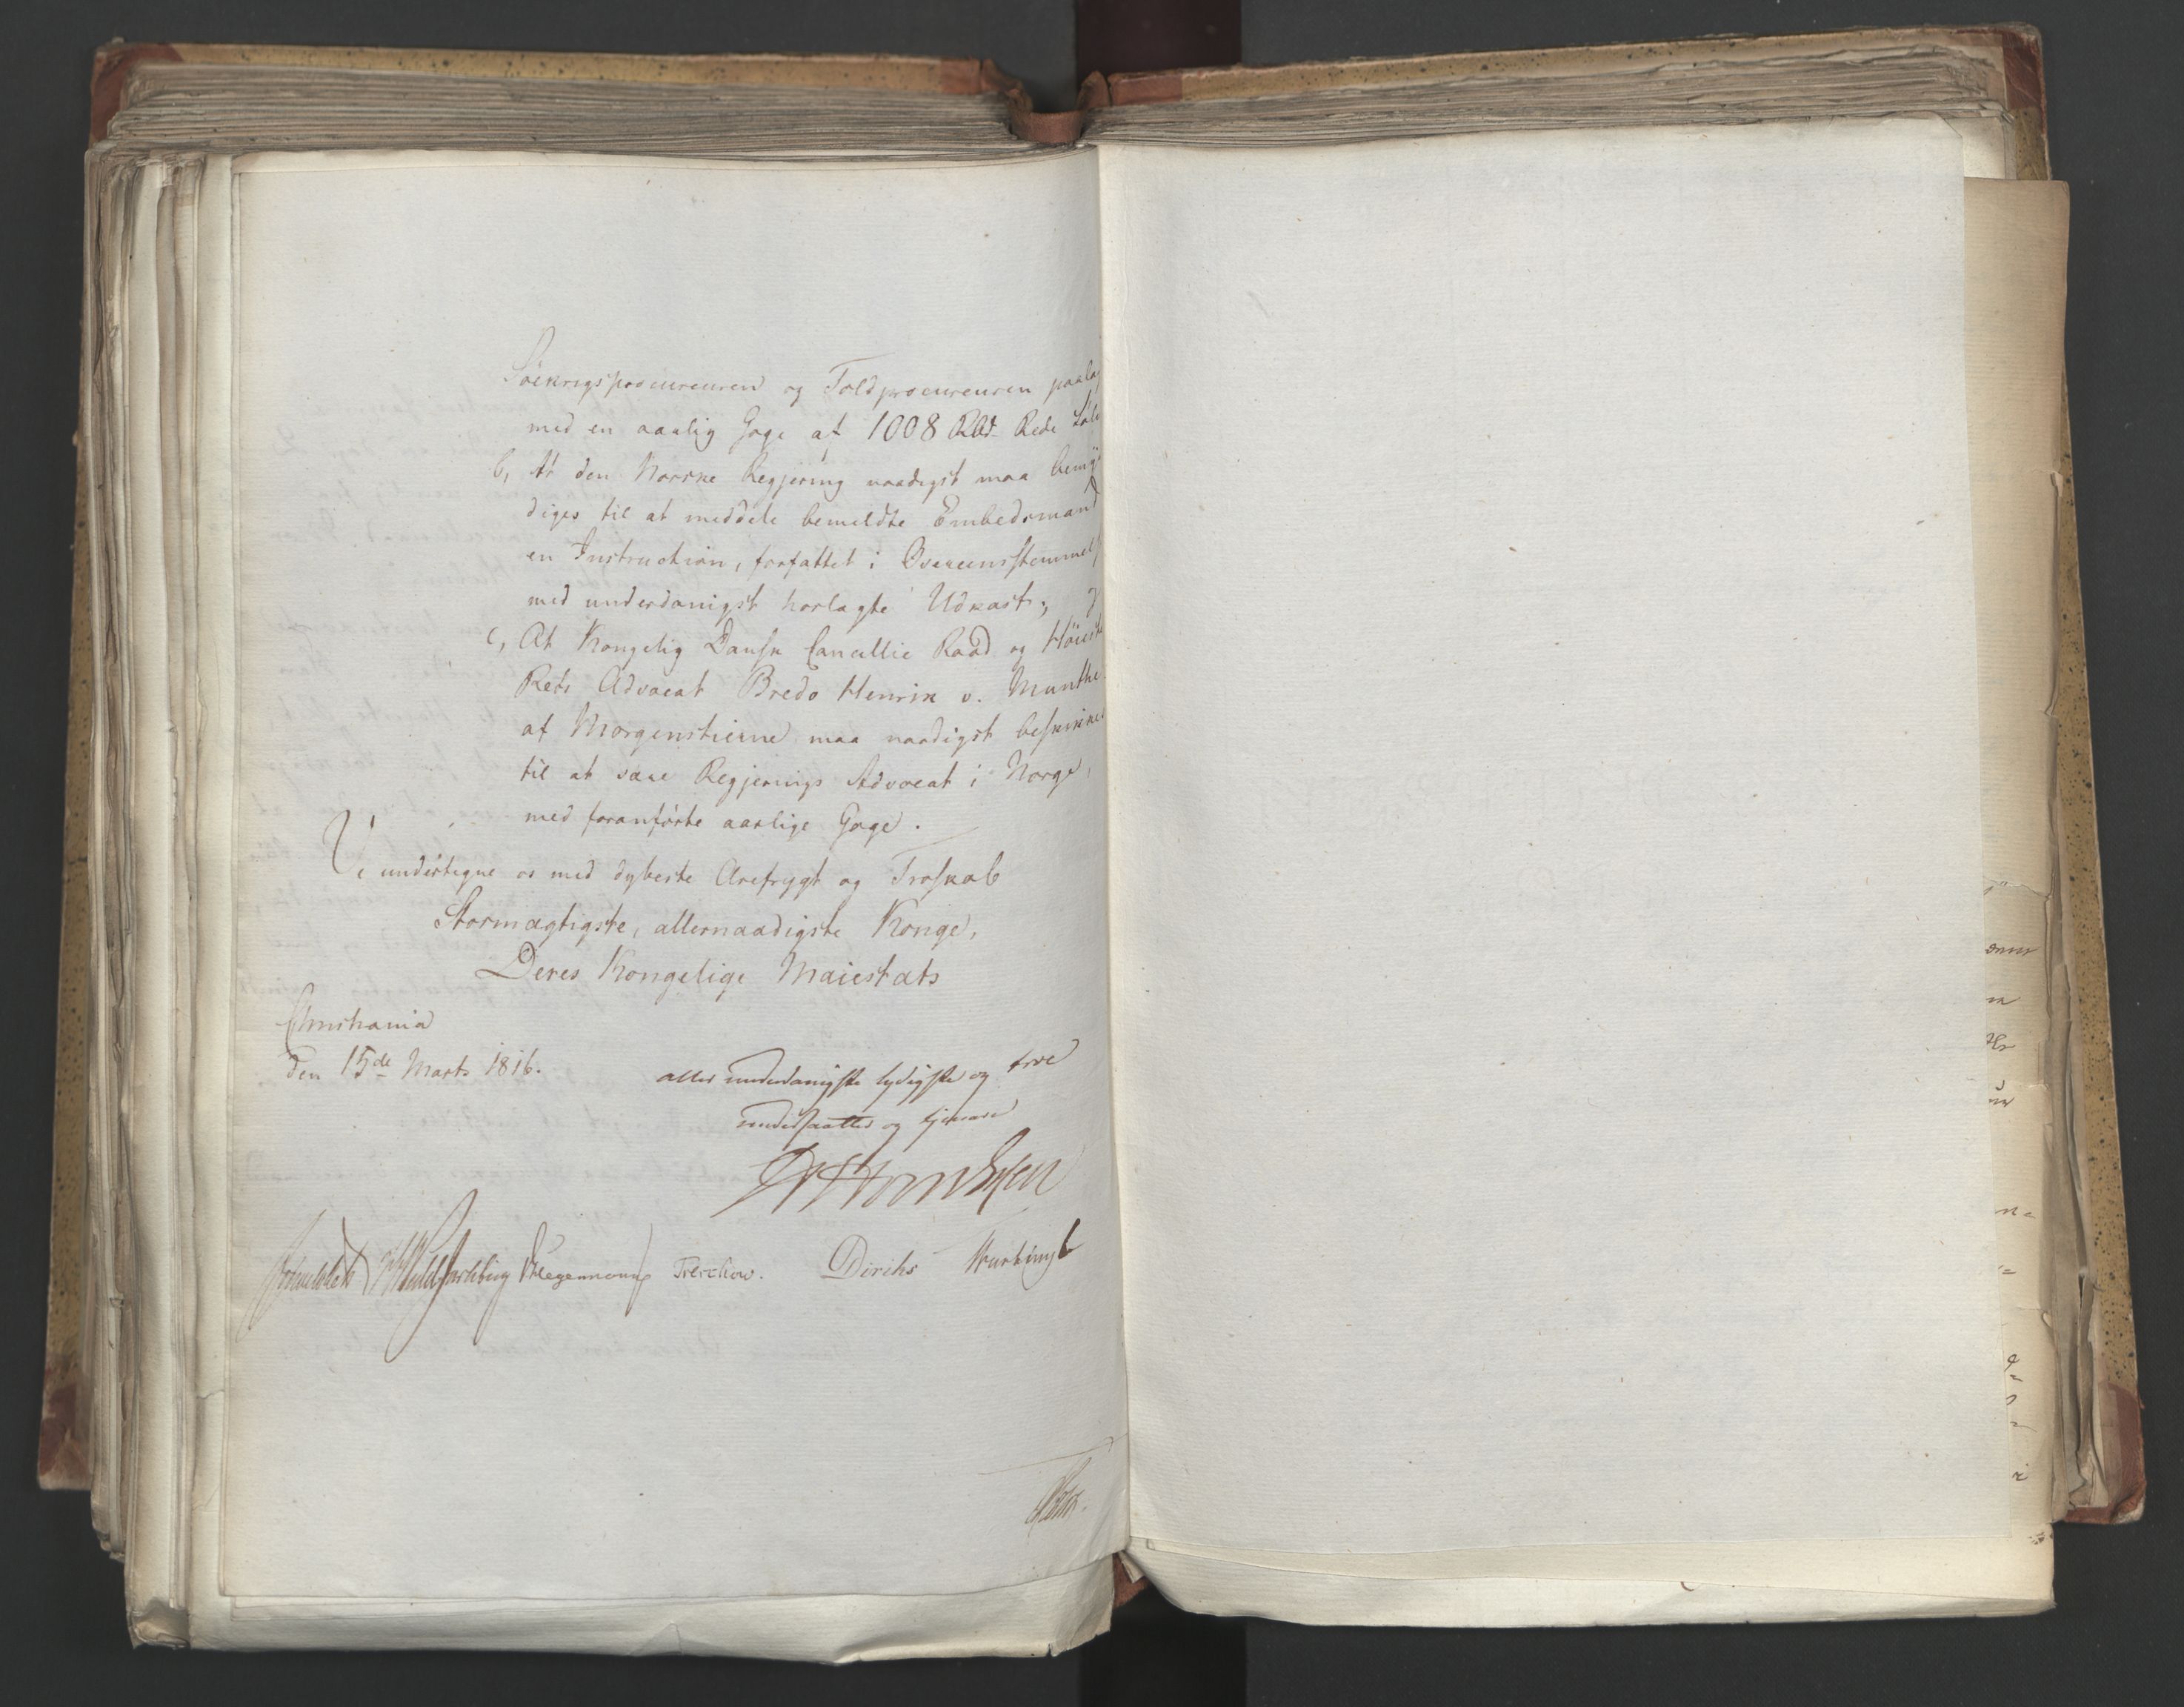 Söekrigsprocureuren og Toldprocureuren paalag
med en aarlig Gage af 1008 Rbd. Rede Sölv
b, At den Norske Regjering naadigst maa bemyn
diges til at meddele bemeldte Embedsmand
en Instruction, forfattet i Overeensstemmelse
med underdanigst horlagte Udkast; og
c, At Kongelig Dansk Cancellie Raad og Höieste
Rets Advocat Bredo Henrik v. Munthe
af Morgenstierne maa naadigst beskikkes
til at være Regjerings Advocat i Norge,
med foranförte aarlige Gage.
Vi undertegne os med dybeste Ærefrygt og Troskab
Stormægtigste, allernaadigste Konge,
Deres Kongelige Maiestæts
Christiania
den 15de Marts 1816.
allerunderdanigste lydigste og troe
undersaatter og tjenere
Sommerhielm
Hegermann Treschow. Diriks